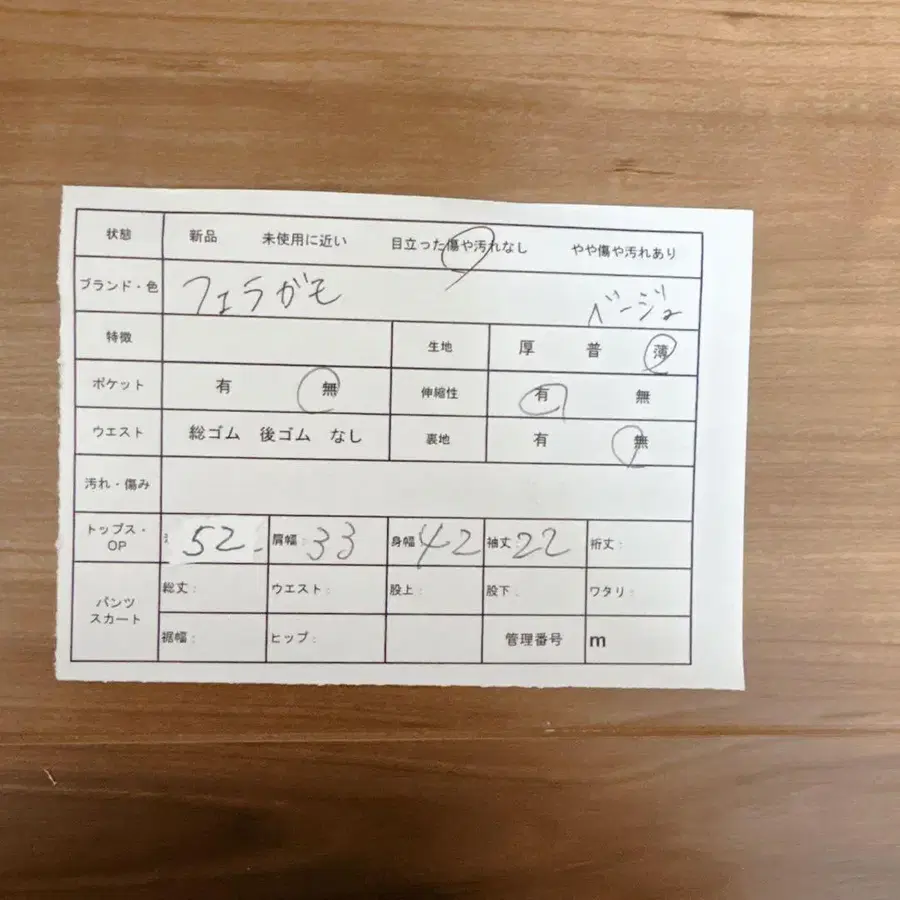 状態 新品 未使用に近い 目立った傷や汚れなし やや傷や汚れあり
ブランド・色 フェラガモ ベージュ
特徴 生地 厚 普 薄
ポケット 有 無 伸縮性 有 無
ウエスト 総ゴム 後ゴム なし 裏地 有 無
汚れ・傷み
トップス・OP 52 肩幅: 33 身幅 42 袖丈 22 裄丈:
パンツ スカート 総丈: ウエスト: 股上: 股下: ワタリ:
裾幅: ヒップ: 管理番号 m